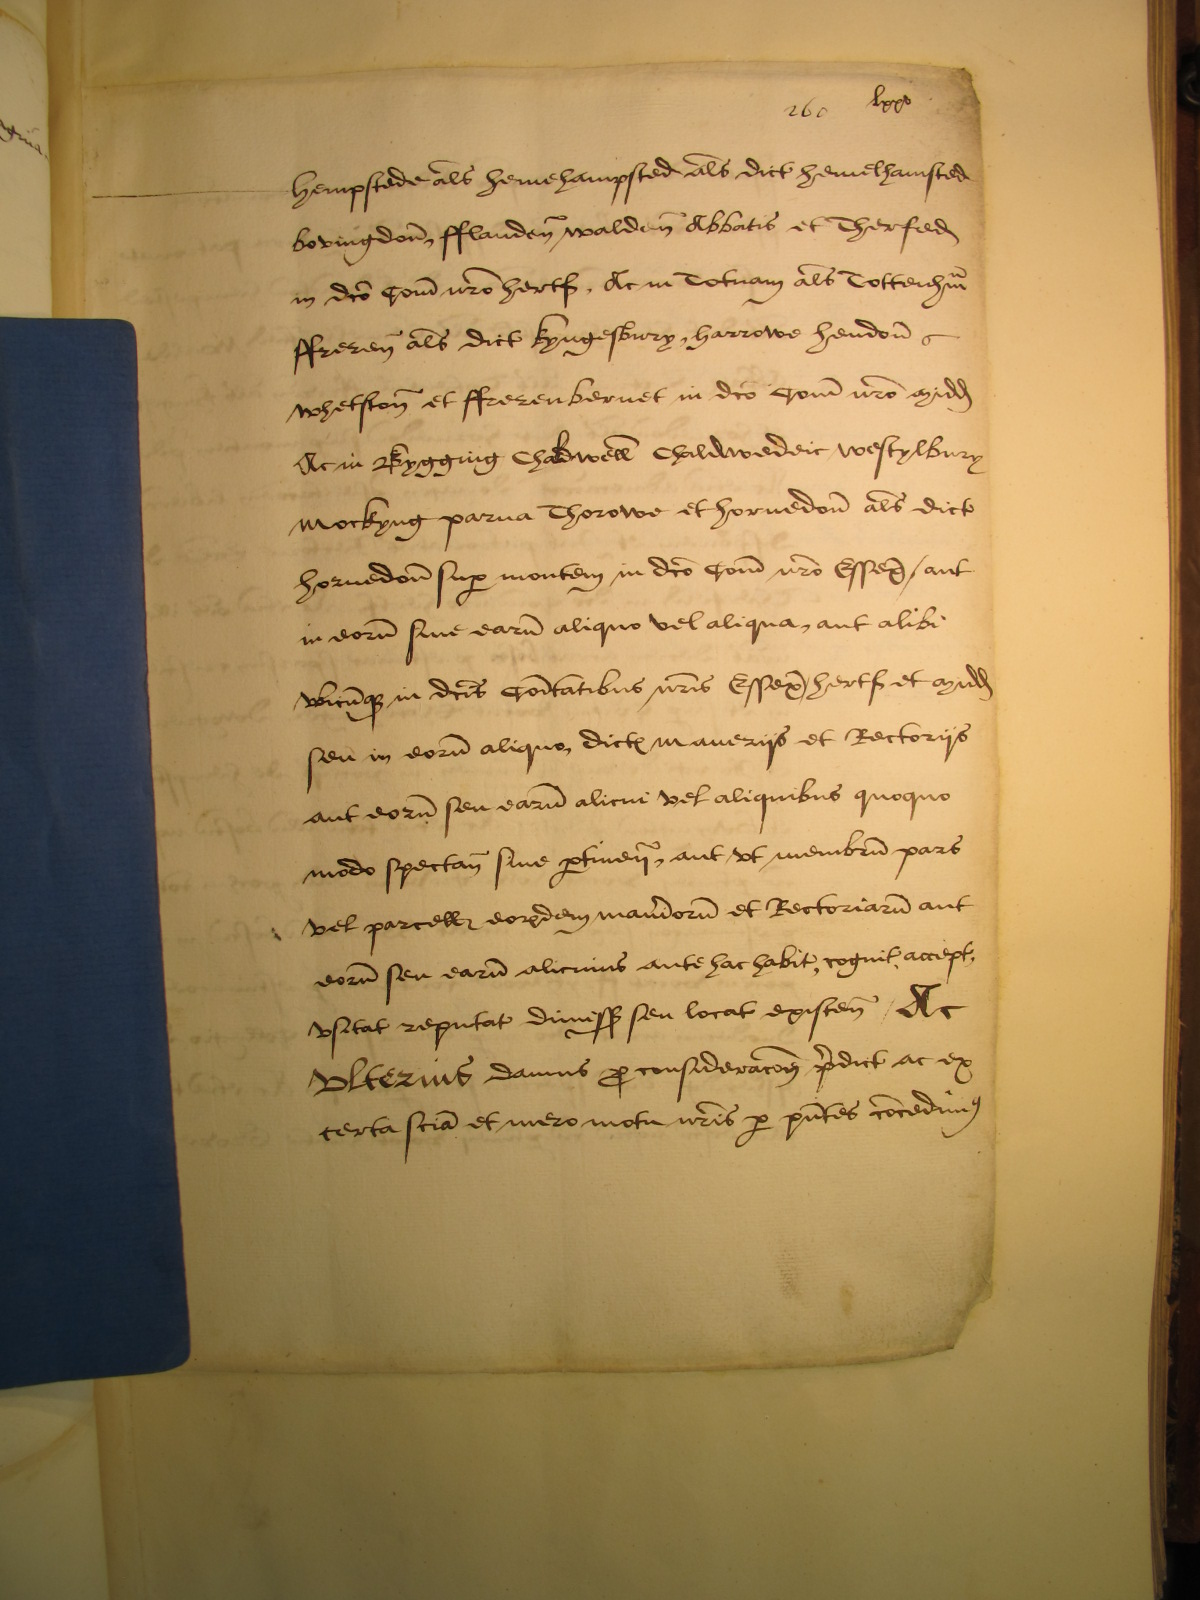 260 lxxv
hempstede als̄ hemehampsted als̄ dict hemelhamsted
bovingdoñ, fflaundeñ waldeñ Abbatis et Therfed
in dc̄o Com̄ nr̄o hertf. Ac in Totnam als̄ Tottenhm̄
ffrereñ als̄ dict kyngesbury, harrowe hendoñ
whetstoñ et ffrerenbernet in dc̄o Com̄ nr̄o midd
Ac in Chaldwell Chaldwedeic westylbury
Mockyng parua Thorowe et hornedoñ als̄ dict
hornedoñ sup montem in dc̄o Com̄ nr̄o Essex / aut
in eorū siue earū aliquo vel aliqua, aut alibi
vbicūq in dc̄is Com̄tatibus nr̄is Essex, hertf et midd
seu in eorū aliquo, dict Manerijs et Rectorijs
aut eorū seu earū alicui vel aliquibus quoquo
modo spectañ siue ptineñ, aut vt membrū pars
vel parcell eordem man̄iorū et Rectoriarū aut
eorū seu earū alicuius ante hac habit, cognit, accept,
vsitat reputat dimiss seu locat existeñ / Ac
vlterius damus p consideracōn p̄dict ac ex
certa sciā et mero motu nr̄is p pn̄tes cōcedimꝰ